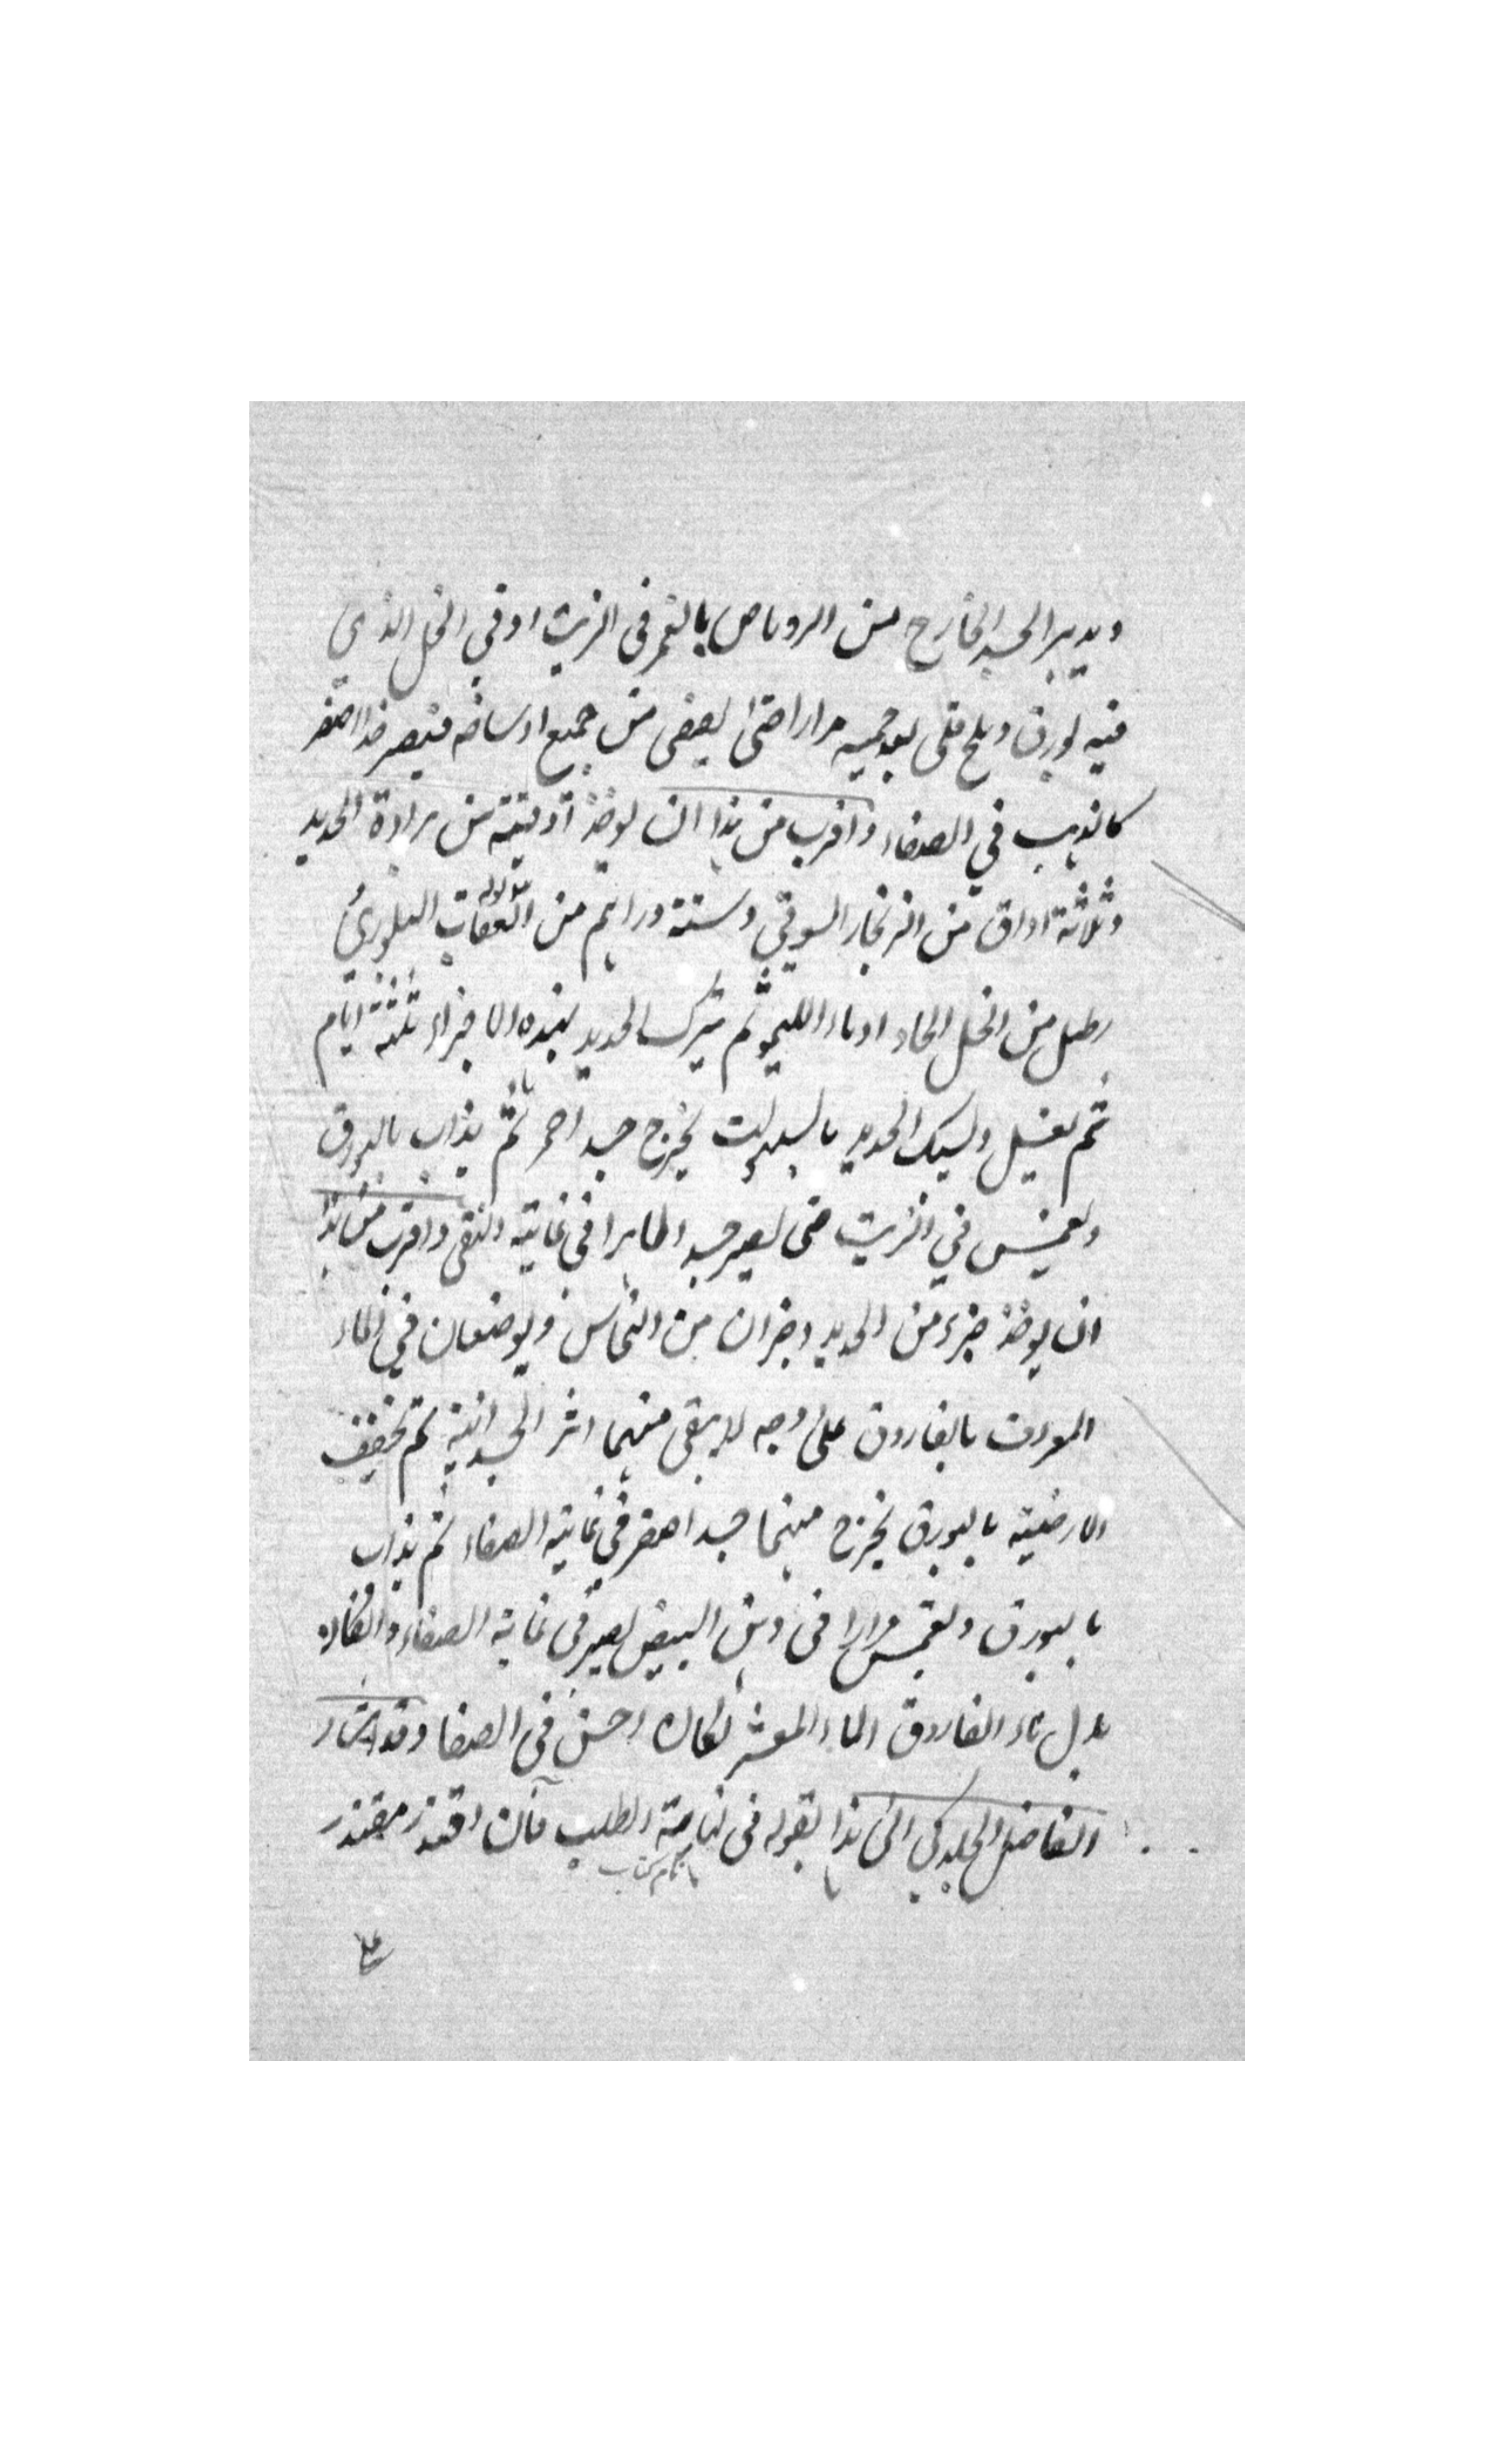 ويدبر الجسد الخارج من الروباص بالغمر في الزيت او في الخل الذي
فيه بورق وملح قلى بعد حميه مرارا حتى يصفى من جميع اوساخه فيصير جدا اصفر
كالذهب في الصفاء واقرب من هذا ان يوخذ اوقية من برادة الحديد
وثلاثة اواق من الزنجار السوقي وستة دراهم من العقاب البلوري
رطل من الخل الحاد او ماء الليمو ثم يترك الحديد بهذه الاجزاء ثلثة ايام
ثم يغسل ويسبك الحديد بالسهولت يخرج جسد احمر ثم يذاب بالبورق
ويغمس في الزيت حتى يصير جسدا طاهرا في غاية النقى واقرب من هذا
ان يوخذ جزء من الحديد وجزان من النحاس ويوضعان في الماء
المعروف بالفاروق على وجه لا يبقى منهما اثر الجسدانية ثم تخفف
الارضية بالبورق يخرج منهما جسد اصفر في غاية الصفاء ثم يذاب
بالبورق ويغمس مرارا في دهن البيض يصير في غاية الصفاء ولو كان
بدل ماء الفاروق الماء المعشر لكان احسن في الصفا وقد اشار
الفاضل الجلدكي الى هذا بقوله في نهاية الطلب فان اقتدر مقتدر
نام كتاب
على